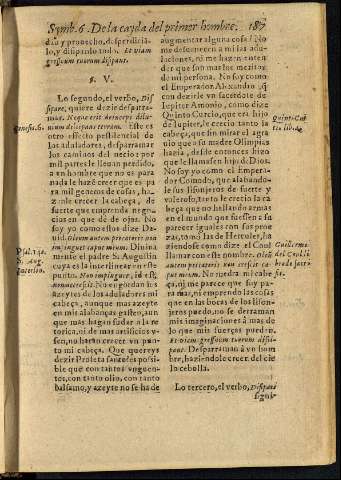 Symb. 6. De la cayda del primer hombre. 187
dad y prouecho, desperdicia-
lo, y disipando todo. Et viam
gressuum tuorum dissipant.
§. V.
Lo segundo, el verbo, Dis
sipare, quiere dezir desparra-
mar.
efecto pestilencial de
los aduladores, desparramar
los caminos del necio: por
mil partes le lleuan perdido,
que no es hombre que os pa-
rara nada le hazē creer que es pa
ra mil generos de cosas, ha-
zenle crecer la cabeça, de
suerte que emprenda nego-
cios en que dè de ojos. No
soy yo como estos dize Da-
uid. Oleum autem peccatoris non
impinguet caput meum. Diuina
mente el P. S. Augustin
cuya es la interlinear en este
punto. Non impinguet, id est,
No engordan los
azeytes de los aduladores mi
cabeça, aunque mas azeyte
en mis alabanças gasten, aun
que mas hagan sudar a la re
torica, ni de mas artificios v-
sen, no harán crecer vn pun-
to mi cabeça. Que quereys
dezir Profeta santo? es possi-
ble que con tantos vnguen-
tos, con tanto olio, con tanto
balsamo, y azeyte no se ha de
Psal. 140.
S. Aug.
augmentar alguna cosa? No
me desuanecen a mi las adu-
laciones, ni me hazen enten-
der que son marlos meritos
de mi persona. No soy como
el Emperador Alexandro, q̃
con dezirle vn sacerdote de
Iupiter Amonio, como dize
Quinto Curcio, que era hijo
de Iupiter, le crecio tanto la
cabeça, que sin mirar el agra
uio que a su madre Olimpia
hazia, desde entonces hizo
que le llamassen hijo de Dios.
No soy yo como el Empera-
dor Comodo, que alabando-
le sus lisonjeros de fuerte y
valeroso, tanto le crecio la ca
beça que no hallando armas
en el mundo que fuessen a su
parecer iguales con sus proe
zas, tomò las de Hercules, ha
ziendose como dize el Cool
llamar con este nombre. Oleū
autem peccatoris non crescit ca
put meum. No medra mi cabe
ça, ni me parece que soy pa-
ra mas, ni emprendo las cosas
que en las bocas de los lison-
jeros puedo, no se derraman
mis imaginaciones a mas de
lo que mis fuerças pueden.
Et viam gressuum tuorum dissi-
pant. Desparraman à vn hom
bre, haziendole crecer del cie
lo cebolla.
Lo tercero, el verbo, Dissipare
signi-
Quint. Cur
Guillermo
del Cool li